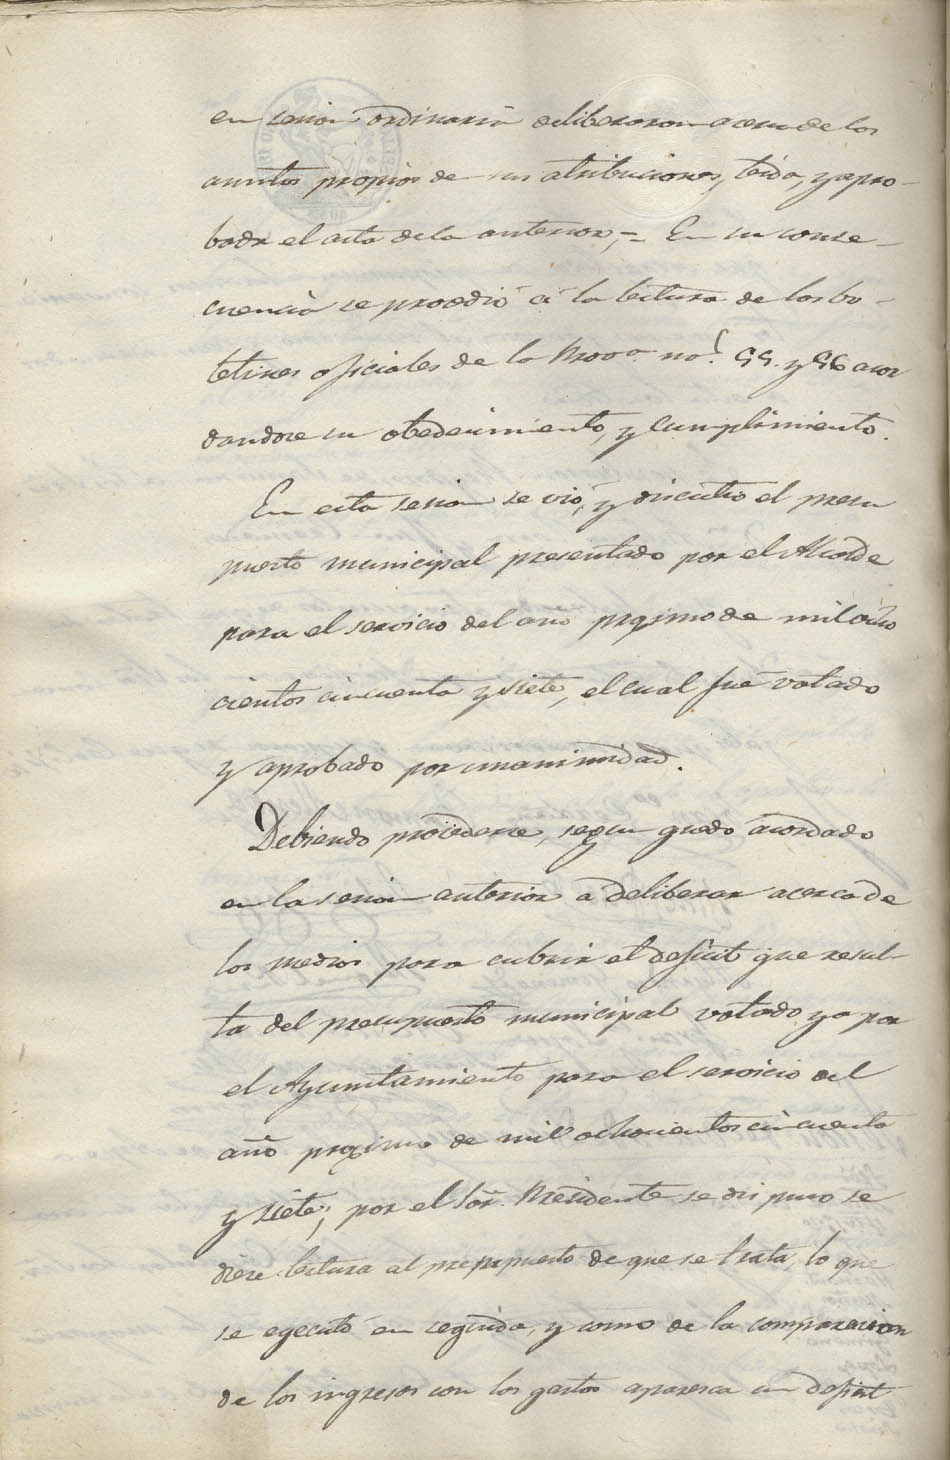 en sesion ordinaria deliberaron acerca de los
asuntos propios de sus atribuciones, leida, y apro-
bada el acta de la anterior,= En su conse-
cuencia se procedió á la lectura de los bo-
letines oficiales de la Prova. nos. 55. y 56 acor
dandose su obedecimiento, y cumplimiento.
En esta sesion se vió, y discutio el presu
puesto municipal presentado por el Alcalde
para el servicio del año proximo de mil ocho
cientos cincuenta y siete, el cual fue votado
y aprobado por unanimidad.
Debiendo procederse, segun quedo acordado
en la sesion anterior a deliberar acerca de
los medios para cubrir el deficit que resul-
ta del presupuesto municipal votado ya por
el Ayuntamiento para el servicio del
año proximo de mil ochocientos cincuenta
y siete; por el Sor. Presidente se dispuso se
diese lectura al presupuesto de que se trata, lo que
se egecutó en seguida, y como de la comparacion
de los ingresos con los gastos aparesca un deficit